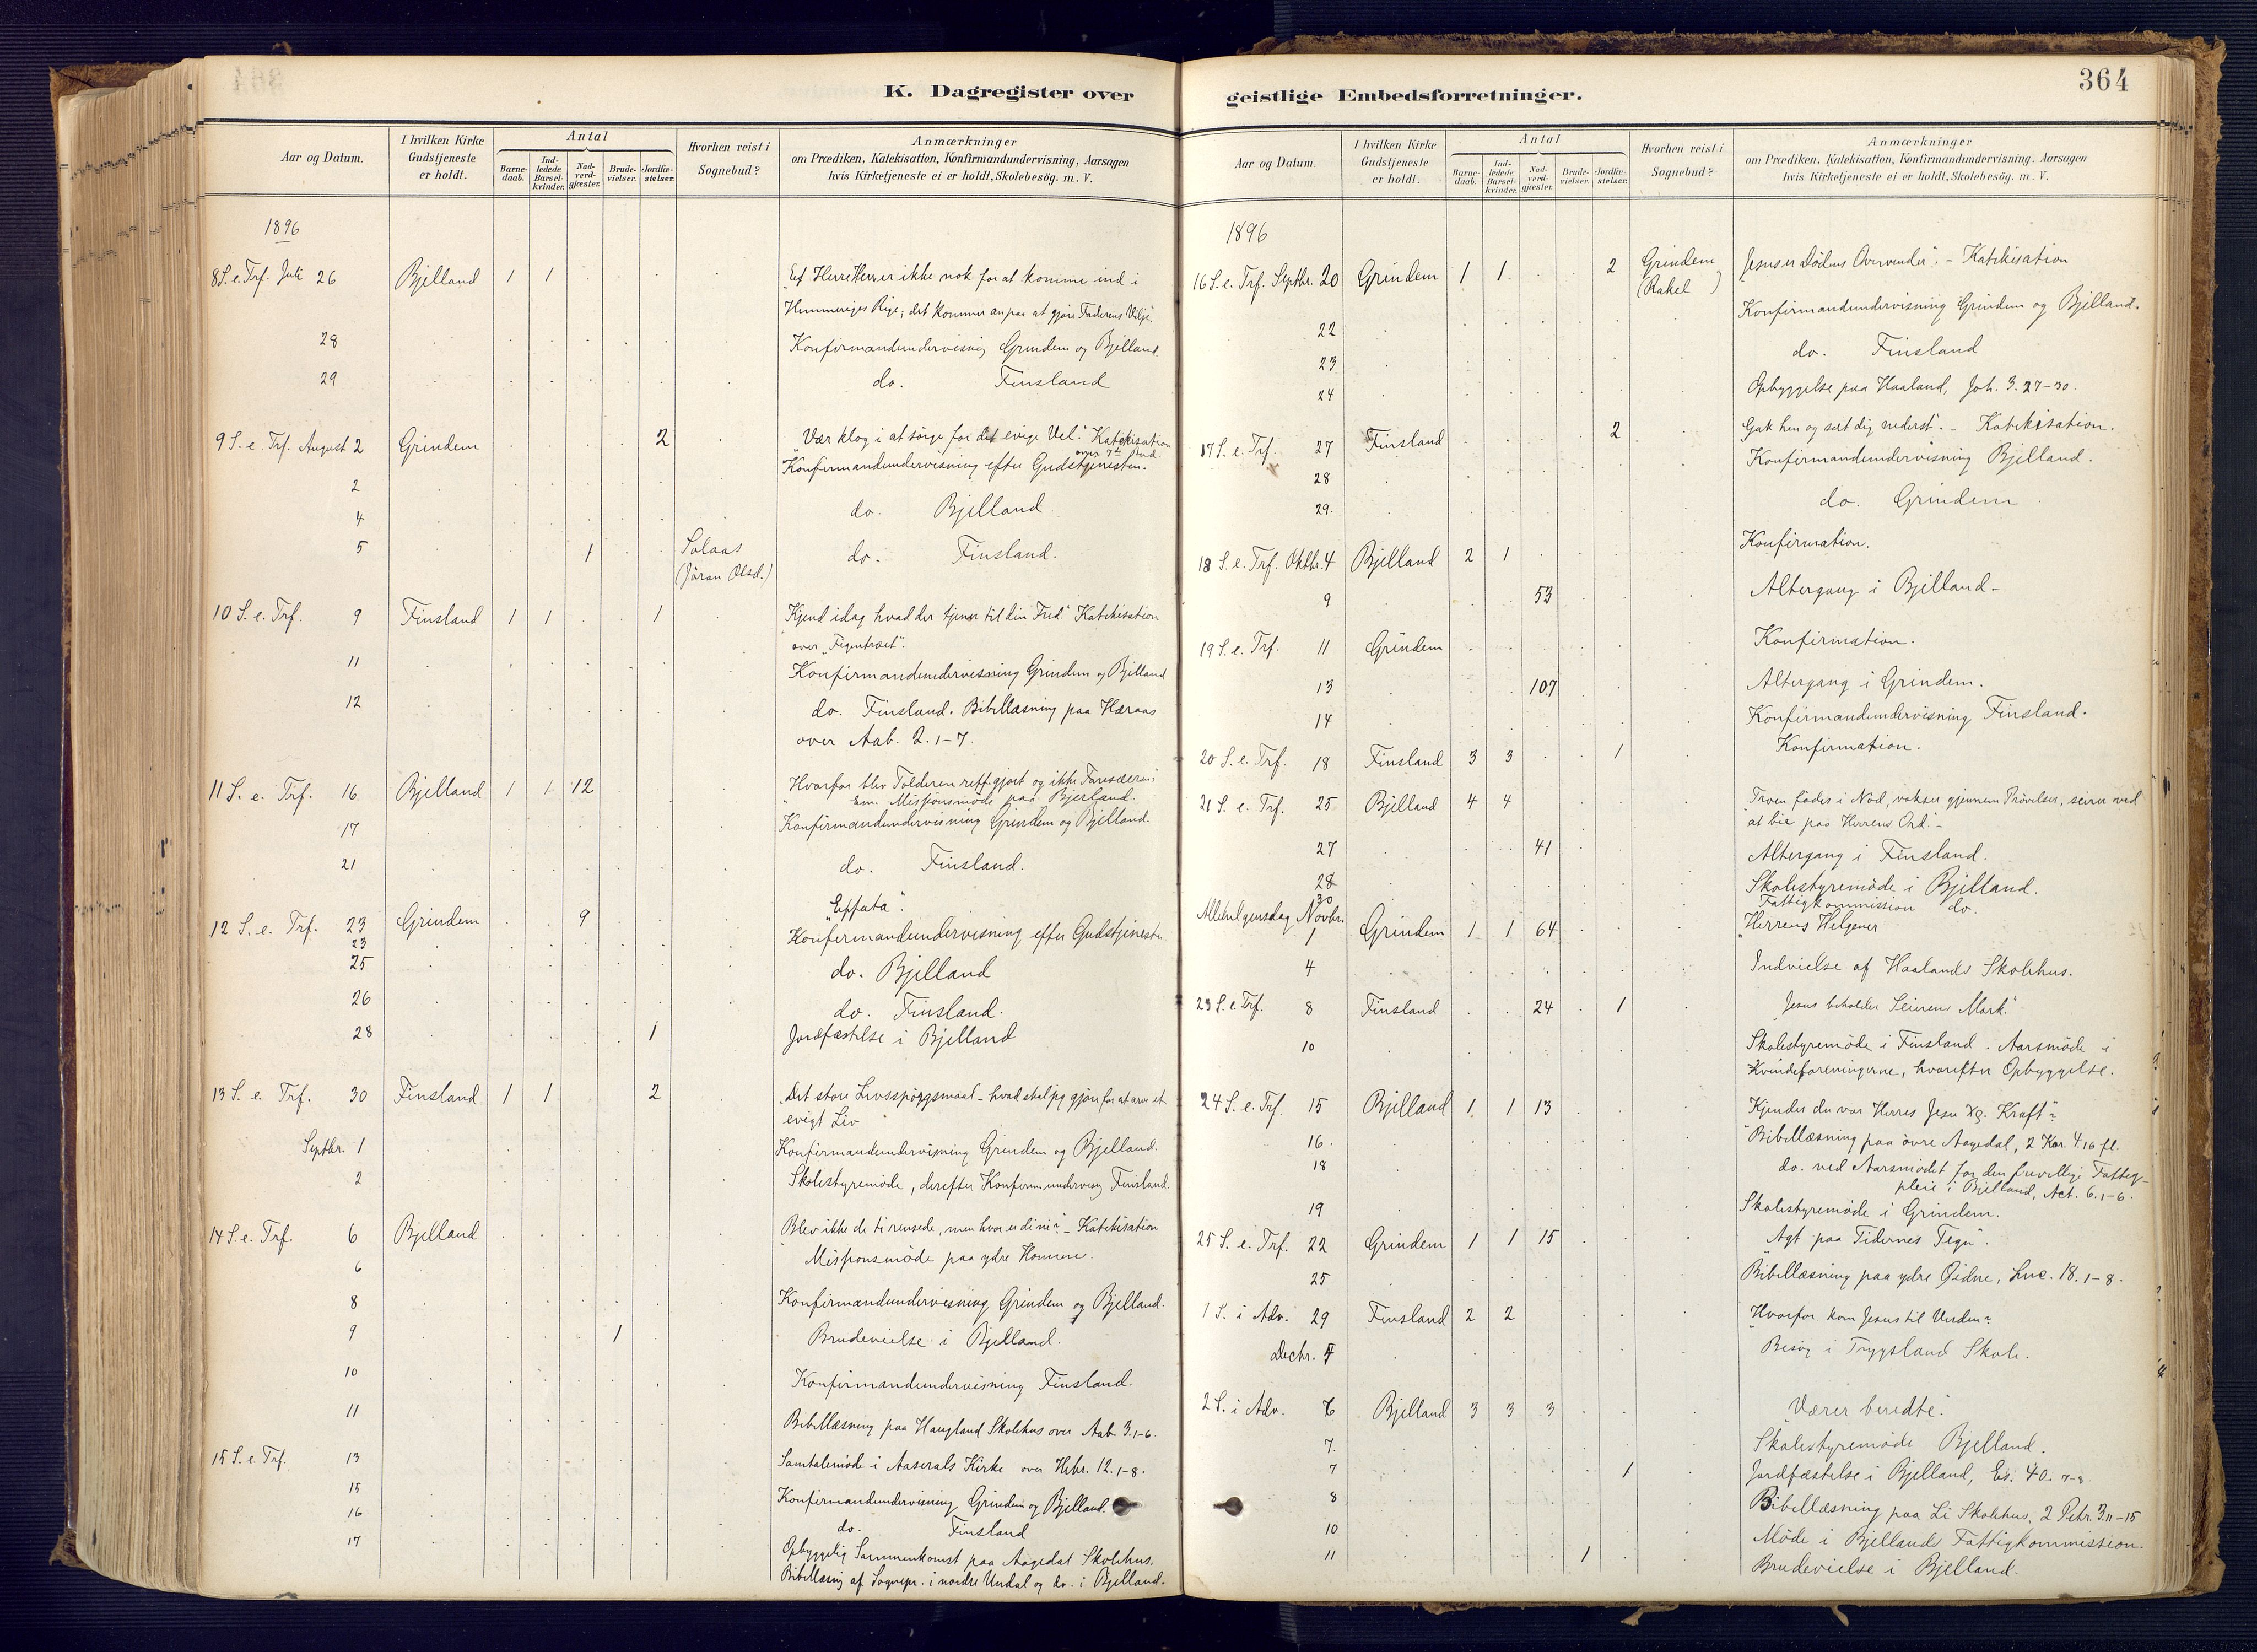 K. Dagregister over
Aar og Datum.
I hvilken Kirke Gudstjeneste er holdt.
Antal
Barnedaab.
Indledede Barselkvinder.
Nadverdgjæster.
Brudevielser.
Jordfæstelser.
Hvorhen reist i Sognebud?
Anmærkninger
om Prædiken, Katekisation, Konfirmandundervisning, Aarsagen
hvis Kirketjeneste ei er holdt, Skolebesøg. m. V.
1896
8 S. e. Trf. Juli 26 Bjelland 1 1 Herre Herre er ikke nok for at komme ind i
Himmeriges Rige; det kommer an paa at gjøre Faderens Vilje
28 Konfirmandundervisning Grindem og Bjelland.
29 do. Finsland
9 S. e. Trf. August 2 Grindem 2 "Vær klog i at sørge for dit evige Vel." Katekisation
over 7de Bud
2 Konfirmandundervisning efter Gudstjenesten.
4 do. Bjelland.
5 1 Solaas do. Finsland.
(Jöran Olsd.)
10 S. e. Trf. 9 Finsland 1 1 1 "Kjend idag hvad der tjener til din Fred." Katekisation
over "Figentræet".
11 Konfirmandundervisning Grindem og Bjelland
12 do. Finsland. Bibellæsning paa Hæraas
over Aab. 2. 1-7.
11 S. e. Trf. 16 Bjelland 1 1 12 "Hvorfor blev Tolderen rettf.gjort og ikke Farisæeren?
Em. Missionsmøde paa Bjerland.
17 Konfirmandundervisning Grindem og Bjelland.
21 do. Finsland.
12 S. e. Trf. 23 Grindem 9 "Effata".
23 Konfirmandundervisning efter Gudstjenesten
25 do. Bjelland
26 do. Finsland.
28 1 Jordfæstelse i Bjelland
13 S. e. Trf. 30 Finsland 1 1 2 "Det store Livsspørgsmaal - hvad skal jeg gjøre for at arve et
evigt Liv
Septbr. 1 Konfirmandundervisning Grindem og Bjelland.
2 Skolestyremøde, derefter Konfirm.undervisng Finsland.
14 S. e. Trf. 6 Bjelland "Blev ikke de ti rensede, men hvor er di ni?" - Katekisation
6 Missionsmøde paa ydre Homme.
8 Konfirmandundervisning Grindem og Bjelland.
9 1 Brudevielse i Bjelland.
10 Konfirmandundervisning Finsland.
11 Bibellæsning paa Haugland Skolehus over Aab. 3. 1-6.
15 S. e. Trf. 13 Samtalemøde i Aaserals Kirke over Hebr. 12. 1-8.
15 Konfirmandundervisning Grindem og Bjelland.
16 do. Finsland
17 Opbyggelig Sammenkomst paa Aagedal Skolehus.
Bibellæsng af Sognepr. i nordre Undal og do. i Bjelland.
geistlige Embedsforretninger.
364
Aar og Datum.
I hvilken Kirke Gudstjeneste er holdt.
Antal
Barnedaab.
Indledede Barselkvinder.
Nadverdgjæster.
Brudevielser.
Jordfæstelser.
Hvorhen reist i Sognebud?
Anmærkninger
om Prædiken, Katekisation, Konfirmandundervisning, Aarsagen
hvis Kirketjeneste ei er holdt, Skolebesøg. m. V.
1896
16 S. e. Trf. Septbr. 20 Grindem 1 1 2 Grindem Jesus er Dødens Overvinder". - Katekisation
(Rakel )
22 Konfirmandundervisning Grindem og Bjelland.
23 do. Finsland
24 Opbyggelse paa Haaland, Joh. 3. 27-30.
17 S. e. Trf. 27 Finsland 2 Gak hen og sæt dig nederst". - Katekisation.
28 Konfirmandundervisning Bjelland.
29. do. Grindem
18 S. e. Trf. Oktbr. 4 Bjelland 2 1 Konfirmation.
9 53 Altergang i Bjelland -
19 S. e. Trf. 11 Grindem Konfirmation.
13 107 Altergang i Grindem.
14 Konfirmandundervisning Finsland.
20 S. e. Trf. 18 Finsland 3 3 1 Konfirmation.
21 S. e. Trf. 25 Bjelland 4 4 "Troen fødes i Nød, vokser gjennem Prøvelser, seirer ved
at bie paa Herrens Ord." -
27 41 Altergang i Finsland.
28 Skolestyremøde i Bjelland.
30 Fattigkommission do.
Allehelgensdag Novbr. 1 Grindem 1 1 64 "Herrens Helgener
4 Indvielse af Haalands Skolehus.
23 S. e Trf. 8 Finsland 24 1 Jesus beholder Seierens Mark."
10 Skolestyremøde i Finsland. Aarsmøde i
Kvindeforeningerne, hvorefter Opbyggelse.
24 S. e. Trf. 15 Bjelland 1 1 13 "Kjender du vor Herres Jesu Kraft"?
16. Bibellæsning paa øvre Aagedal, 2 Kor. 4. 16 fl.
18 do. ved Aarsmødet for den frivillige Fattig-
pleie i Bjelland, Act. 6. 1-6.
19 Skolestyremøde i Grindem.
25 S. e. Trf. 22 Grindem 1 1 15 "Agt paa Tidernes Tegn".
25 Bibellæsning paa ydre Øidne, Luc. 18. 1-8.
1 S. i Adv. 29 Finsland 2 2 "Hvorfor kom Jesus til Verden?
Decbr. 4 Besøg i Trygsland Skole.
2 S. i Adv. 6 Bjelland 3 3 3 "Værer beredte.
7. Skolestyremøde Bjelland.
7 1 Jordfæstelse i Bjelland, Es. 40. 7-8.
8 Bibellæsning paa Li Skolehus, 2 Petr. 3. 11-15
10 Møde i Bjellands Fattigkommission.
11 1 Brudevielse i Bjelland.